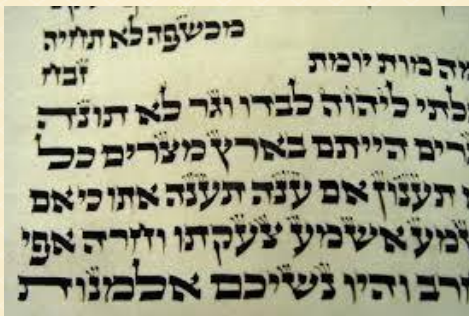 מכשפה לא תחיה
מה מות יומת זבח
לתי ליהוה לבדו וגר לא תונה
רים הייתם בארץ מצרים כל
תענון אם ענה תענה אתו כי אם
מע אשמע צעקתו וחרה אפי
רב והיו נשיכם אלמנות